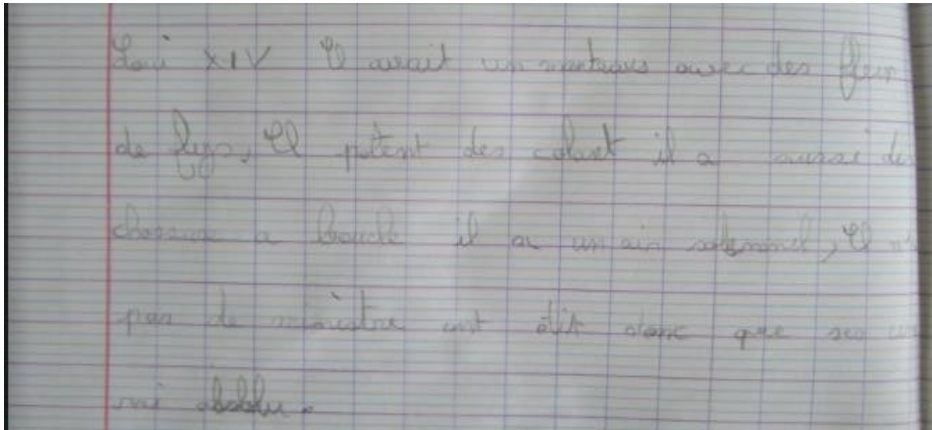 Loui XIV Il avait un manteaus avec des fleur
de lys, Il potent des colant il a aussi des
chossure a boucle il a un air solennel, Il n'a
pas de ministre ont dit donc que ses un
roi absolu.